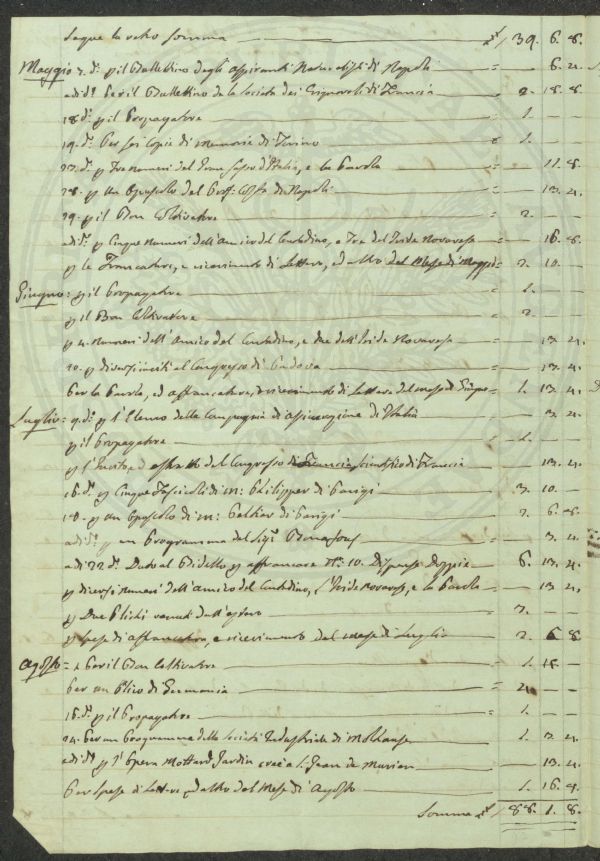 Segue la retro somma — £ 139. 6. 8.
Maggio 2. d.o p il Bullettino degli aspiranti Naturalisti di Napoli — = — 6. 4.
adi d.o Per il Bullettino della Società dei Vignaroli di Francia — = 2. 18. 8
18 d.o p il Propagatore — = 1. —
19. d.o Per sei copie di memorie di Torino — = 1. —
23. d.o p Tre numeri del d'Italia, e la Parola — = — 11. 8.
28. p un Opuscolo del Prof. Costa di Napoli — = — 13. 4.
29. p il Bon Coltivatore — = 2. —
adi d.o p Cinque numeri dell'Amico del Contadino, e Tre del Iride Novarese — = — 16. 8.
p le Francature, e ricevimento di Lettere, ed altro del Mese di Maggio = 2. 10. —
Giugno: p il Propagatore — = 1. —
p il Bon Coltivatore — = 2. —
p 4. numeri dell'Amico del Contadino, e due dell'Iride Novarese — — 13. 4.
20. p diversi inviti al Congresso di Padova — — 13. 4.
Per la Parola, ed affrancature, e ricevimento di Lettere del mese di Giugno — 1. 13. 4.
Luglio: 9. d.o p l'Elenco della Compagnia di assicurazione di Italia — — 3. 4.
p il Propagatore — 1. —
p l'Invito, ed estratto del Congresso di Francia scientifico di Francia — 13. 4.
16. d.o p Cinque Fascicoli di m: Philipper di Parigi — 3. 10. —
18. p un Opuscolo di m: Peltier di Parigi — 2. 6. 8.
adi d.o p un Programma del Sig.r Bonafous — — 3. 4.
adi 22 d.o Dato al Bidello p affrancare N.o 10. Dispense Doppie — 6. 13. 4.
p diversi numeri dell'Amico del Contadino, l'Iride Novarese, e la Parola — — 13 4.
p Due Plichi venuti dall'estero — = 3. —
p spese di affrancatura, e ricevimento del mese di Luglio — 2. 6 8
Agosto = Per il Bon Coltivatore — = 1. 18. —
Per un Plico di Germania — = 2. —
16. d.o p il Propagatore — = 1. —
24. Per un Programma della Società Industriale di Molhause — 1. 3. 4.
adi d.o p l'Opera Mottard Jardin S. Jean de Maurien — — 13. 4.
Per spese di Lettere, ed altro del Mese di Agosto — 1. 16. 4.
Somma £ 188. 1. 8.